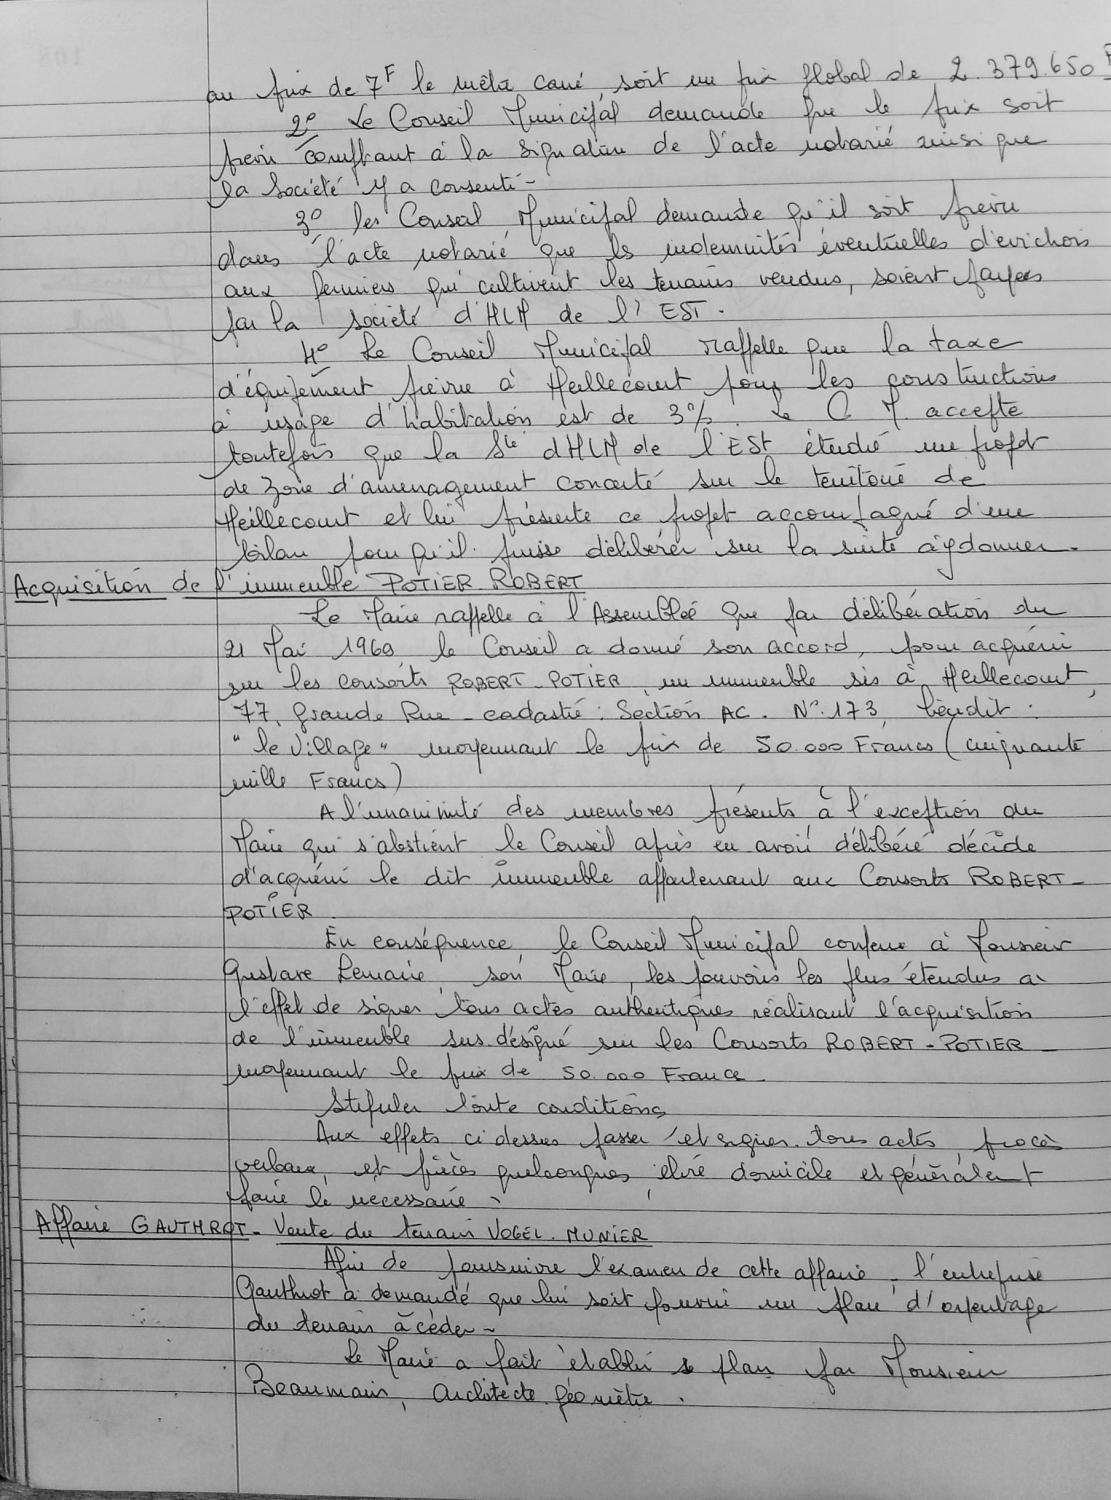 au prix de 7F le mètre carré, soit un prix global de 2.379.650 F
2° Le Conseil Municipal demande que le prix soit
prévu comptant à la signature de l'acte notarié ainsi que
la Société y a consenti -
3° les Conseil Municipal demande qu'il soit prévu
dans l'acte notarié que ls indemnités éventuelles d'eviction
aux fermiers qui cultivent les terrains vendus, soient payées
par la société d'HLM de l'EST.
4° Le Conseil Municipal rappelle que la taxe
d'équipement prévue à Heillecourt pour les constructions
à usage d'habitation est de 3%. Le C.M. accepte
toutefois que la Sté d'HLM de l'ESt étudie un projet
de Zone d'amenagement concerté sur le territoire de
Heillecourt et lui présente ce projet accompagné d'un
bilan pour qu'il puisse délibérer sur la suite à y donner.
Acquisition de l'immeuble POTIER-ROBERT
Le Maire rappelle à l'Assemblée que par délibération du
21 Mai 1969 le Conseil a donné son accord, pour acquérir
sur les consorts ROBERT-POTIER, un immeuble sis à Heillecourt,
77, Grande Rue - cadastré : Section AC. N° 173, lieudit :
"le Village" moyennant le prix de 50.000 Francs (cinquante
mille Francs)
A l'unanimité des membres présents à l'exception du
Maire qui s'abstient le Conseil après en avoir délibéré décide
d'acquérir le dit immeuble appartenant aux Consorts ROBERT-
POTIER.
En conséquence, le Conseil Municipal confère à Monsieur
Gustave Lemaire, son Maire, les pouvoirs les plus étendus à
l'effet de signer tous actes authentiques réalisant l'acquisition
de l'immeuble sus désigné sur les Consorts ROBERT-POTIER
moyennant le prix de 50.000 Francs
Stipuler toute conditions
Aux effets ci dessus passer et signer tous actes, procès
verbaux, et pièces quelconques, élire domicile et généralemt
faire le nécessaire.
Affaire GAUTHROT - Vente du terrain VOGEL. MUNIER
Afin de poursuivre l'examen de cette affaire, l'entreprise
Gauthrot a demandé que lui soit fourni un plan d'arpentage
du terrain à céder -
Le Maire a fait établir le plan par Monsieur
Beaumain, Architecte Géomètre.